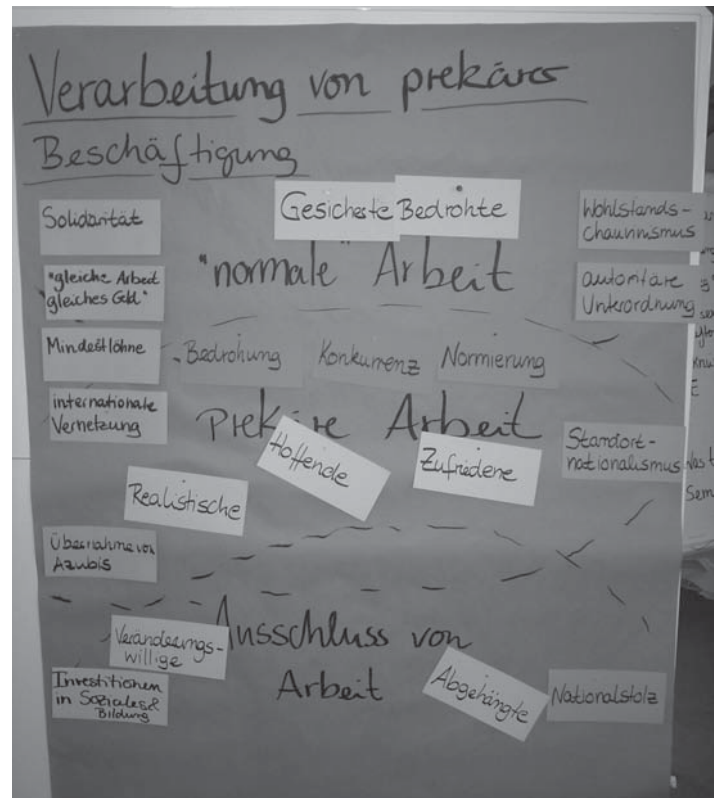 Verarbeitung von prekärer
Beschäftigung
Solidarität
Gesicherte Bedrohte
Wohlstands-
chauvinismus
"normale" Arbeit
"gleiche Arbeit
gleiches Geld"
autoritäre
Unterordnung
Mindestlöhne
Bedrohung Konkurrenz Normierung
internationale
Vernetzung
Prekäre Arbeit
Hoffende
Zufriedene
Standort-
nationalismus
Realistische
Übernahme von
Azubis
Ausschluss von
Arbeit
Veränderungs-
willige
Investitionen
in Soziales &
Bildung
Abgehängte
Nationalstolz